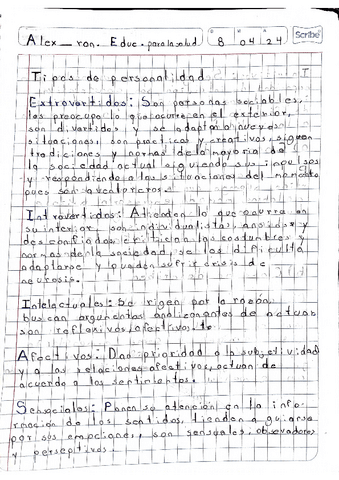 Alex_ron. Educ. para la salud 8 04 24 Scribe
Tipos de personalidad
Extrovertidos: Son personas sociables,
les preocupa lo que ocurre en el exterior,
son divertidos y se adaptan a nuevas
situaciones, son practicos y creativos, siguen
tradiciones y normas de la mayoria de
la sociedad actual siguiendo sus impulsos
y respondiendo a las situaciones del momento
pues son
Introvertidos: Atienden lo que ocurra en
su interior, son individualistas, ansiosos y
desconfiados, critican las costumbres y
normas de la sociedad, se les dificulta
adaptarse y pueden sufrir crisis de
neurosis.
Intelectuales: Se rigen por la razón,
buscan argumentos antes de actuar
son reflexivos,
Afectivos: Dan prioridad a la subjetividad
y a las relaciones afectivas, actuan de
acuerdo a los sentimientos.
Sensoriales: Ponen su atención en la info-
rmación de los sentidos, tienden a guiarse
por sus emociones, son sensuales, observadores
y perceptivos.